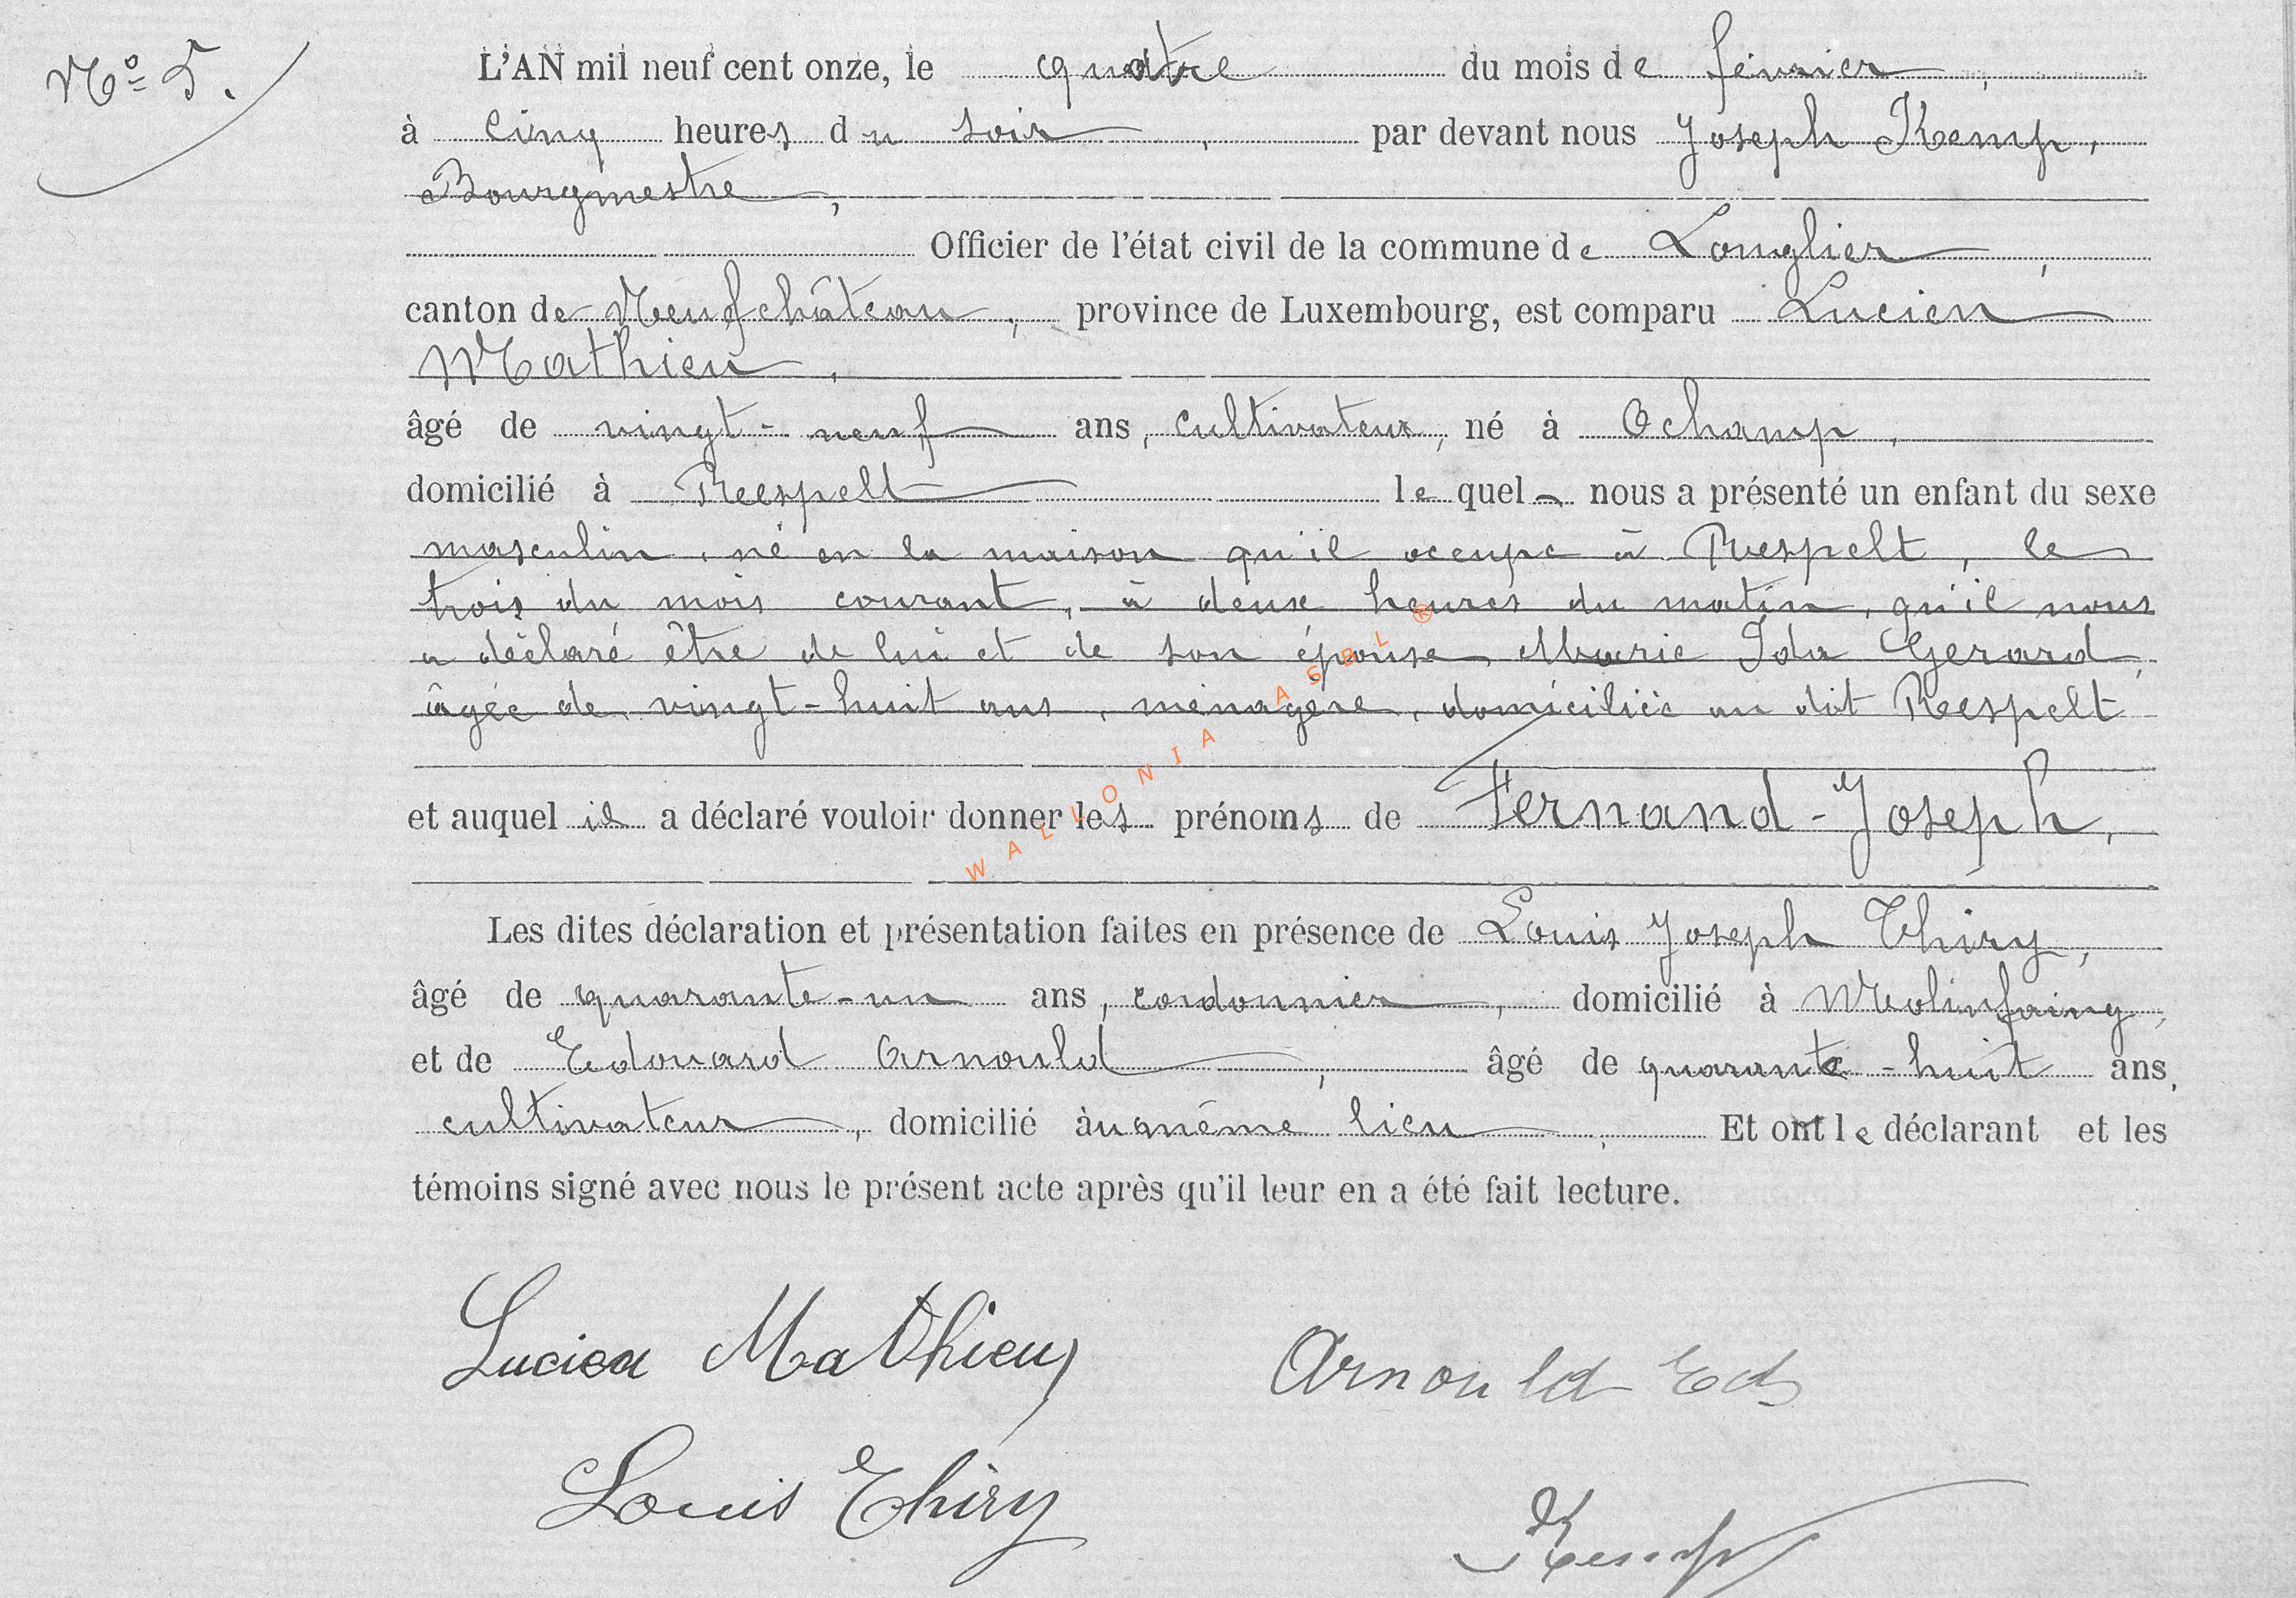 Nº 5.
L'AN mil neuf cent onze, le quatre du mois de février,
à cinq heures du soir, par devant nous Joseph Kemp,
Bourgmestre,
Officier de l'état civil de la commune de Longlier,
canton de Neufchâteau, province de Luxembourg, est comparu Lucien
Mathieu,
âgé de vingt-neuf ans, cultivateur, né à Ochamp,
domicilié à Respelt lequel nous a présenté un enfant du sexe
masculin, né en la maison qu'il occupe à Respelt, le
trois du mois courant, à deux heures du matin, qu'il nous
a déclaré être de lui et de son épouse Marie Ida Gerard,
âgée de vingt-huit ans, ménagère, domiciliée au dit Respelt
et auquel il a déclaré vouloir donner les prénoms de Fernand-Joseph,
Les dites déclaration et présentation faites en présence de Louis Joseph Thiry,
âgé de quarante-un ans, cordonnier, domicilié à Molinfaing,
et de Edouard Arnould, âgé de quarante-huit ans,
cultivateur, domicilié au même lieu. Et ont le déclarant et les
témoins signé avec nous le présent acte après qu'il leur en a été fait lecture.
Lucien Mathieu Arnould Ed
Louis Thiry Kemp
WALLONIA ASBL ®